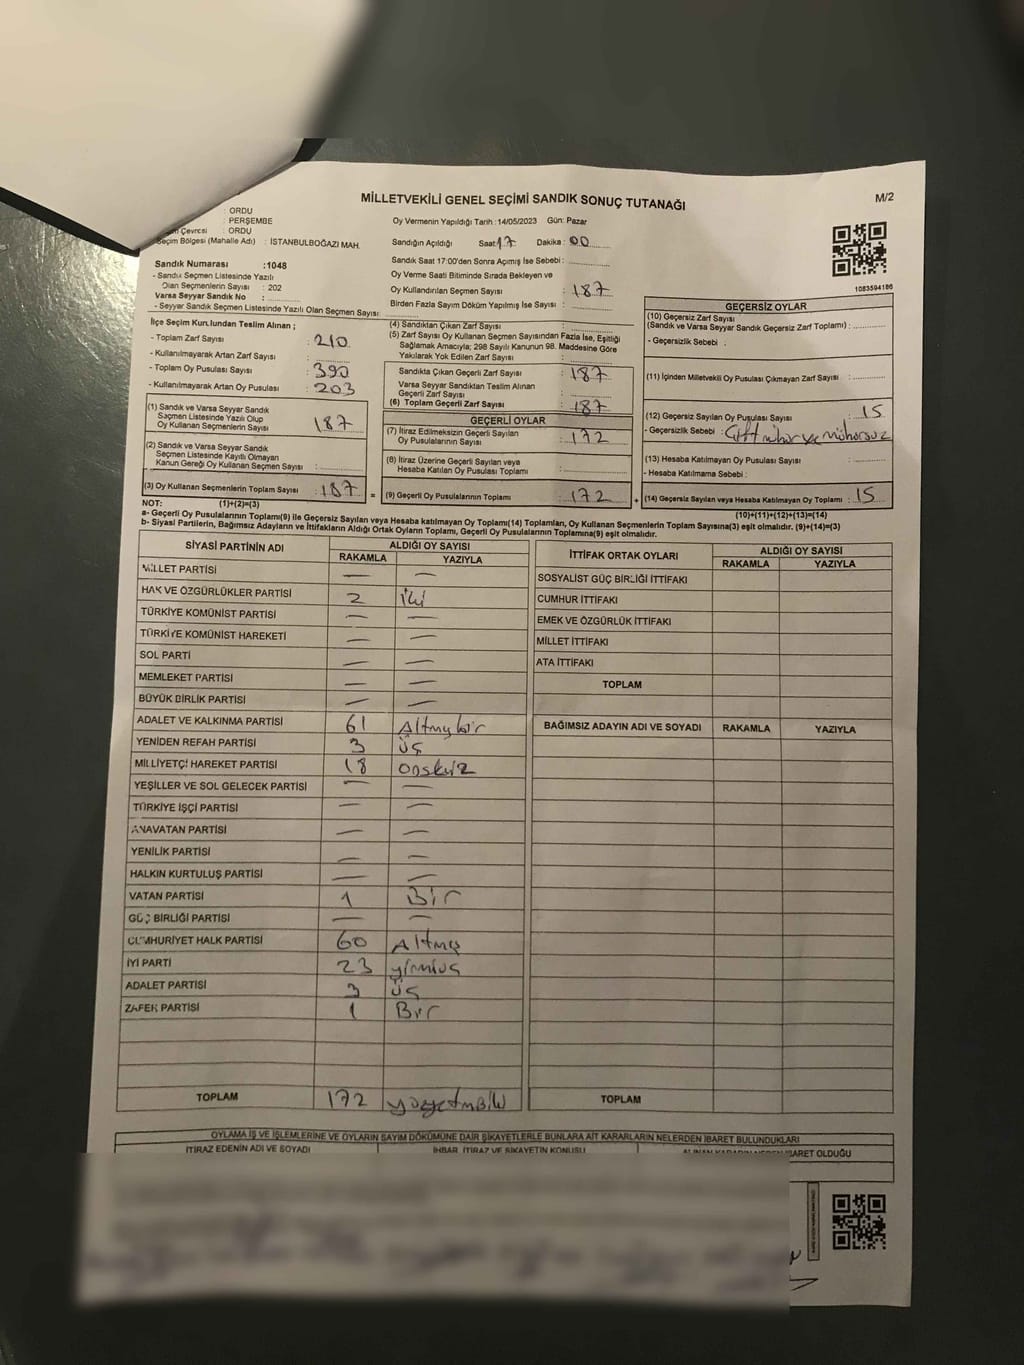 MİLLETVEKİLİ GENEL SEÇİMİ SANDIK SONUÇ TUTANAĞI
M/2
: ORDU
: PERŞEMBE
Çevresi : ORDU
Seçim Bölgesi (Mahalle Adı) : İSTANBULBOĞAZI MAH.
Oy Vermenin Yapıldığı Tarih : 14/05/2023 Gün: Pazar
Sandığın Açıldığı Saat: 17 Dakika : 00
Sandık Numarası :1048
- Sandık Seçmen Listesinde Yazılı
Olan Seçmenlerin Sayısı : 202
Varsa Seyyar Sandık No :
- Seyyar Sandık Seçmen Listesinde Yazılı Olan Seçmen Sayısı:
Sandık Saat 17:00'den Sonra Açımış İse Sebebi :
Oy Verme Saati Bitiminde Sırada Bekleyen ve
Oy Kullandırılan Seçmen Sayısı : 187
Birden Fazla Sayım Döküm Yapılmış İse Sayısı :
1083594186
İlçe Seçim Kurulundan Teslim Alınan ;
- Toplam Zarf Sayısı : 210
- Kullanılmayarak Artan Zarf Sayısı :
- Toplam Oy Pusulası Sayısı : 390
- Kullanılmayarak Artan Oy Pusulası : 203
(1) Sandık ve Varsa Seyyar Sandık
Seçmen Listesinde Yazılı Olup
Oy Kullanan Seçmenlerin Sayısı : 187
(2) Sandık ve Varsa Seyyar Sandık
Seçmen Listesinde Kayıtlı Olmayan
Kanun Gereği Oy Kullanan Seçmen Sayısı :
(3) Oy Kullanan Seçmenlerin Toplam Sayısı : 187 =
(4) Sandıktan Çıkan Zarf Sayısı :
(5) Zarf Sayısı Oy Kullanan Seçmen Sayısından Fazla İse, Eşitliği
Sağlamak Amacıyla; 298 Sayılı Kanunun 98. Maddesine Göre
Yakılarak Yok Edilen Zarf Sayısı :
Sandıkta Çıkan Geçerli Zarf Sayısı : 187
Varsa Seyyar Sandıktan Teslim Alınan
Geçerli Zarf Sayısı :
(6) Toplam Geçerli Zarf Sayısı : 187
GEÇERLİ OYLAR
(7) İtiraz Edilmeksizin Geçerli Sayılan
Oy Pusulalarının Sayısı : 172
(8) İtiraz Üzerine Geçerli Sayılan veya
Hesaba Katılan Oy Pusulası Toplamı :
(9) Geçerli Oy Pusulalarının Toplamı : 172 +
GEÇERSİZ OYLAR
(10) Geçersiz Zarf Sayısı
(Sandık ve Varsa Seyyar Sandık Geçersiz Zarf Toplamı) :
- Geçersizlik Sebebi :
(11) İçinden Milletvekili Oy Pusulası Çıkmayan Zarf Sayısı :
(12) Geçersiz Sayılan Oy Pusulası Sayısı : 15
- Geçersizlik Sebebi : Çift mühür ve mühürsüz
(13) Hesaba Katılmayan Oy Pusulası Sayısı :
- Hesaba Katılmama Sebebi :
(14) Geçersiz Sayılan veya Hesaba Katılmayan Oy Toplamı : 15
NOT: (1)+(2)=(3)
(10)+(11)+(12)+(13)=(14)
a- Geçerli Oy Pusulalarının Toplamı(9) ile Geçersiz Sayılan veya Hesaba katılmayan Oy Toplamı(14) Toplamları, Oy Kullanan Seçmenlerin Toplam Sayısına(3) eşit olmalıdır. (9)+(14)=(3)
b- Siyasi Partilerin, Bağımsız Adayların ve İttifakların Aldığı Ortak Oyların Toplamı, Geçerli Oy Pusulalarının Toplamına(9) eşit olmalıdır.
SİYASİ PARTİNİN ADI ALDIĞI OY SAYISI
RAKAMLA YAZIYLA
MİLLET PARTİSİ — —
HAK VE ÖZGÜRLÜKLER PARTİSİ 2 iki
TÜRKİYE KOMÜNİST PARTİSİ — —
TÜRKİYE KOMÜNİST HAREKETİ — —
SOL PARTİ — —
MEMLEKET PARTİSİ — —
BÜYÜK BİRLİK PARTİSİ — —
ADALET VE KALKINMA PARTİSİ 61 Altmışbir
YENİDEN REFAH PARTİSİ 3 üç
MİLLİYETÇİ HAREKET PARTİSİ 18 onsekiz
YEŞİLLER VE SOL GELECEK PARTİSİ — —
TÜRKİYE İŞÇİ PARTİSİ — —
ANAVATAN PARTİSİ — —
YENİLİK PARTİSİ — —
HALKIN KURTULUŞ PARTİSİ — —
VATAN PARTİSİ 1 Bir
GÜÇ BİRLİĞİ PARTİSİ — —
CUMHURİYET HALK PARTİSİ 60 Altmış
İYİ PARTİ 23 yirmiüç
ADALET PARTİSİ 3 üç
ZAFER PARTİSİ 1 Bir
TOPLAM 172
İTTİFAK ORTAK OYLARI ALDIĞI OY SAYISI
RAKAMLA YAZIYLA
SOSYALİST GÜÇ BİRLİĞİ İTTİFAKI
CUMHUR İTTİFAKI
EMEK VE ÖZGÜRLÜK İTTİFAKI
MİLLET İTTİFAKI
ATA İTTİFAKI
TOPLAM
BAĞIMSIZ ADAYIN ADI VE SOYADI RAKAMLA YAZIYLA
TOPLAM
OYLAMA İŞ VE İŞLEMLERİNE VE OYLARIN SAYIM DÖKÜMÜNE DAİR ŞİKAYETLERLE BUNLARA AİT KARARLARIN NELERDEN İBARET BULUNDUKLARI
İTİRAZ EDENİN ADI VE SOYADI İHBAR, İTİRAZ VE ŞİKAYETİN KONUSU ALINAN KARARIN NEDEN İBARET OLDUĞU